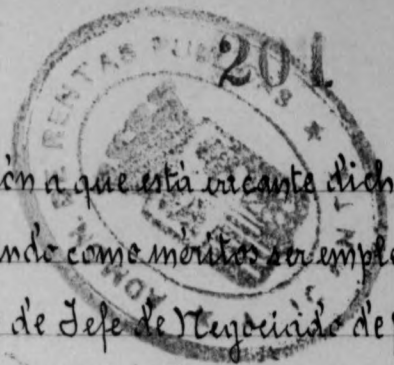 201
ADMON DE RENTAS PUBLICAS
ón a que está vacante dich
ndo como méritos ser emple
de Jefe de Negociado de